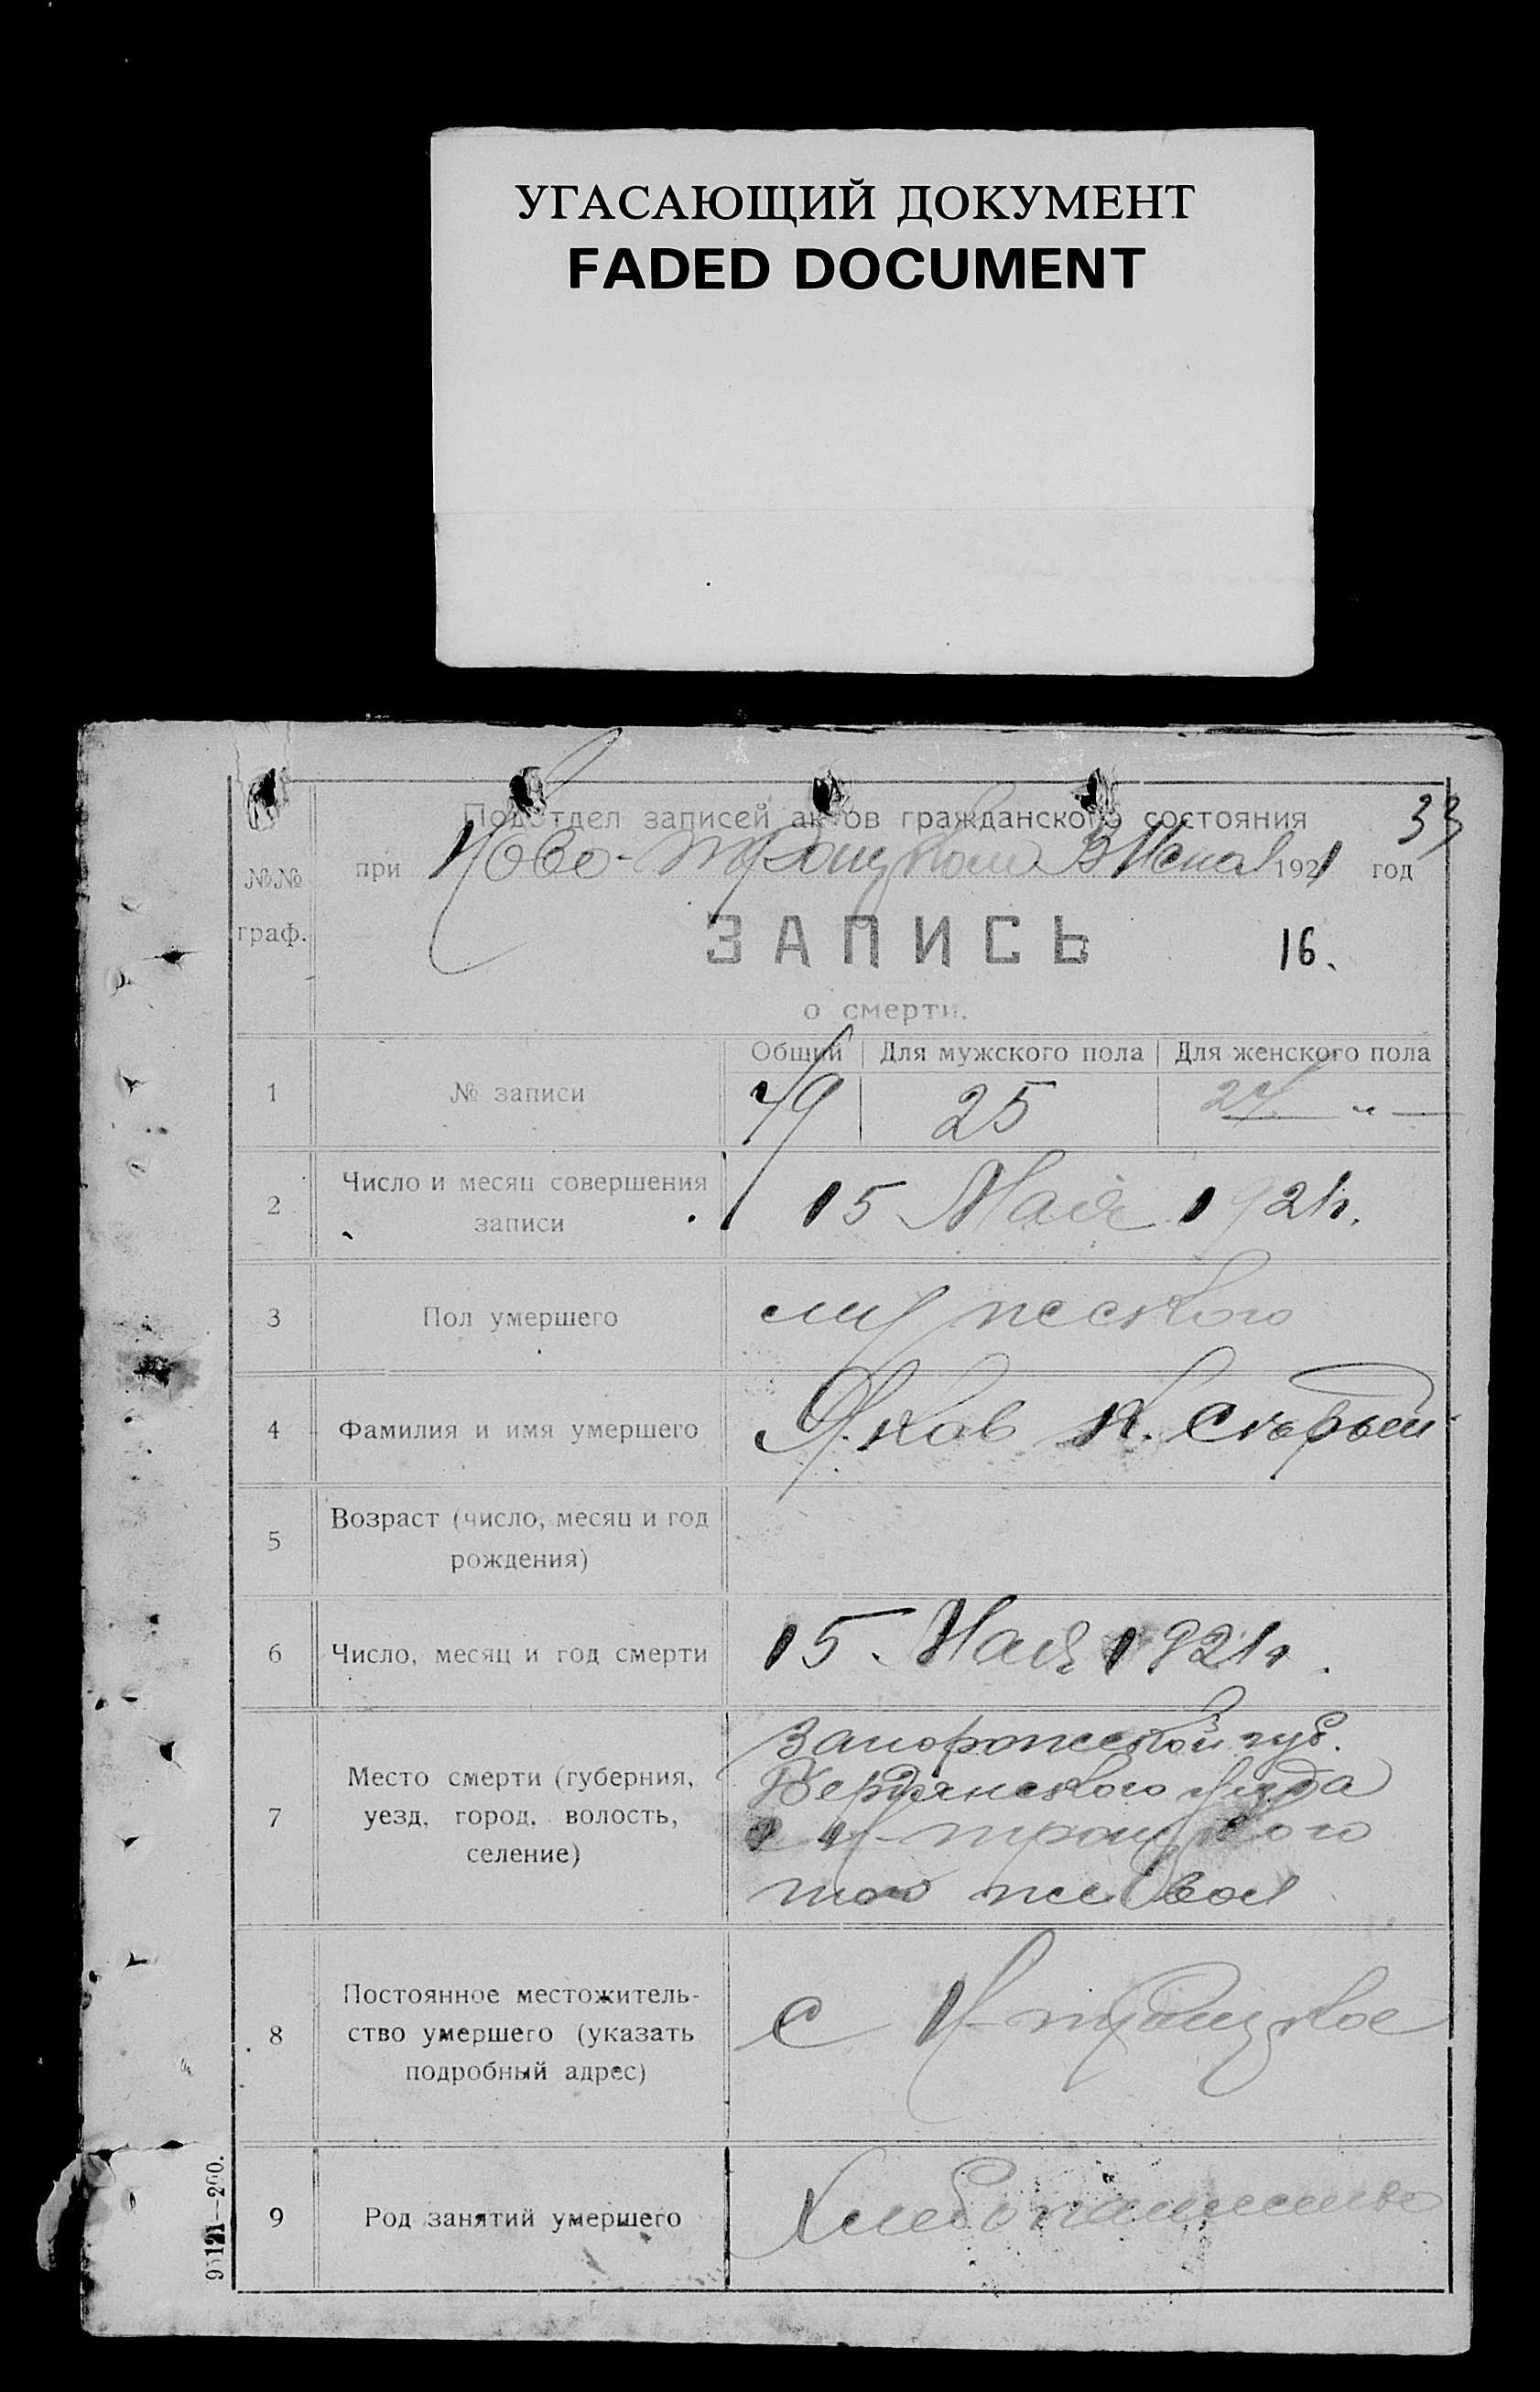 УГАСАЮЩИЙ ДОКУМЕНТ
FADED DOCUMENT
33
Подотдел записей актов гражданского состояния
№№ граф.
при Ново-Троицком 1921 год
ЗАПИСЬ
16.
о смерти.
Общий Для мужского пола Для женского пола
1 № записи 49 25 24 " —
2 Число и месяц совершения
записи
15 Мая 1921г.
3 Пол умершего мужеского
4 Фамилия и имя умершего Яков К.
5 Возраст (число, месяц и год
рождения)
6 Число, месяц и год смерти 15. Мая 1921г.
7 Место смерти (губерния,
уезд, город, волость,
селение)
Запорожской губ.
Бердянского уезда
Н-Троицкого
той же вол
8 Постоянное местожитель-
ство умершего (указать
подробный адрес)
С Н-Троицкое
9 Род занятий умершего Хлебопашество